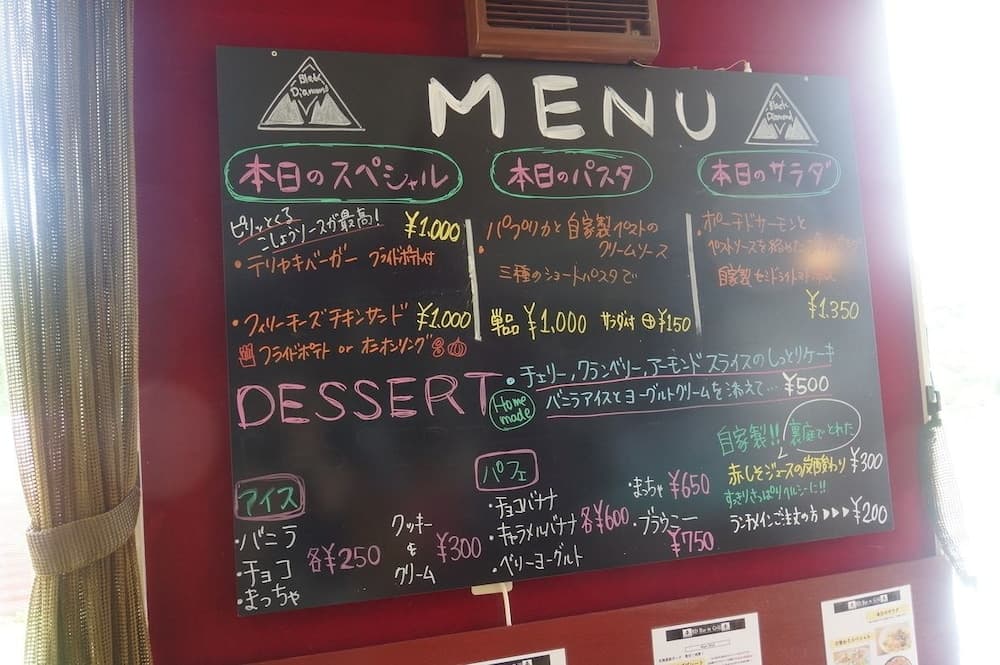 Black
Diamond
MENU
Black
Diamond
本日のスペシャル
ピリッとくる
こしょうソースが最高!
¥1.000
・テリヤキバーガー フライドポテト付
・フィリーチーズチキンサンド ¥1.000
フライドポテト or オニオンリング
本日のパスタ
パプリカと自家製ペストの
クリームソース
三種のショートパスタで
単品 ¥1,000 サラダ付 ⊕¥150
本日のサラダ
ポーチドサーモンと
ペストソースを絡めた
自家製セミドライトマト
¥1.350
DESSERT
Home
made
・チェリー,クランベリー,アーモンドスライスのしっとりケーキ
バニラアイスとヨーグルトクリームを添えて… ¥500
アイス
・バニラ
・チョコ
・まっちゃ
各¥250
クッキー
&
クリーム
¥300
パフェ
・チョコバナナ
・キャラメルバナナ
・ベリーヨーグルト
各¥600
・まっちゃ ¥650
・ブラウニー
¥750
自家製!! 裏庭でとれた
赤しそジュースの炭酸わり ¥300
すっきりさっぱりヘルシーに!!
ランチメインご注文の方 ▶▶▶ ¥200